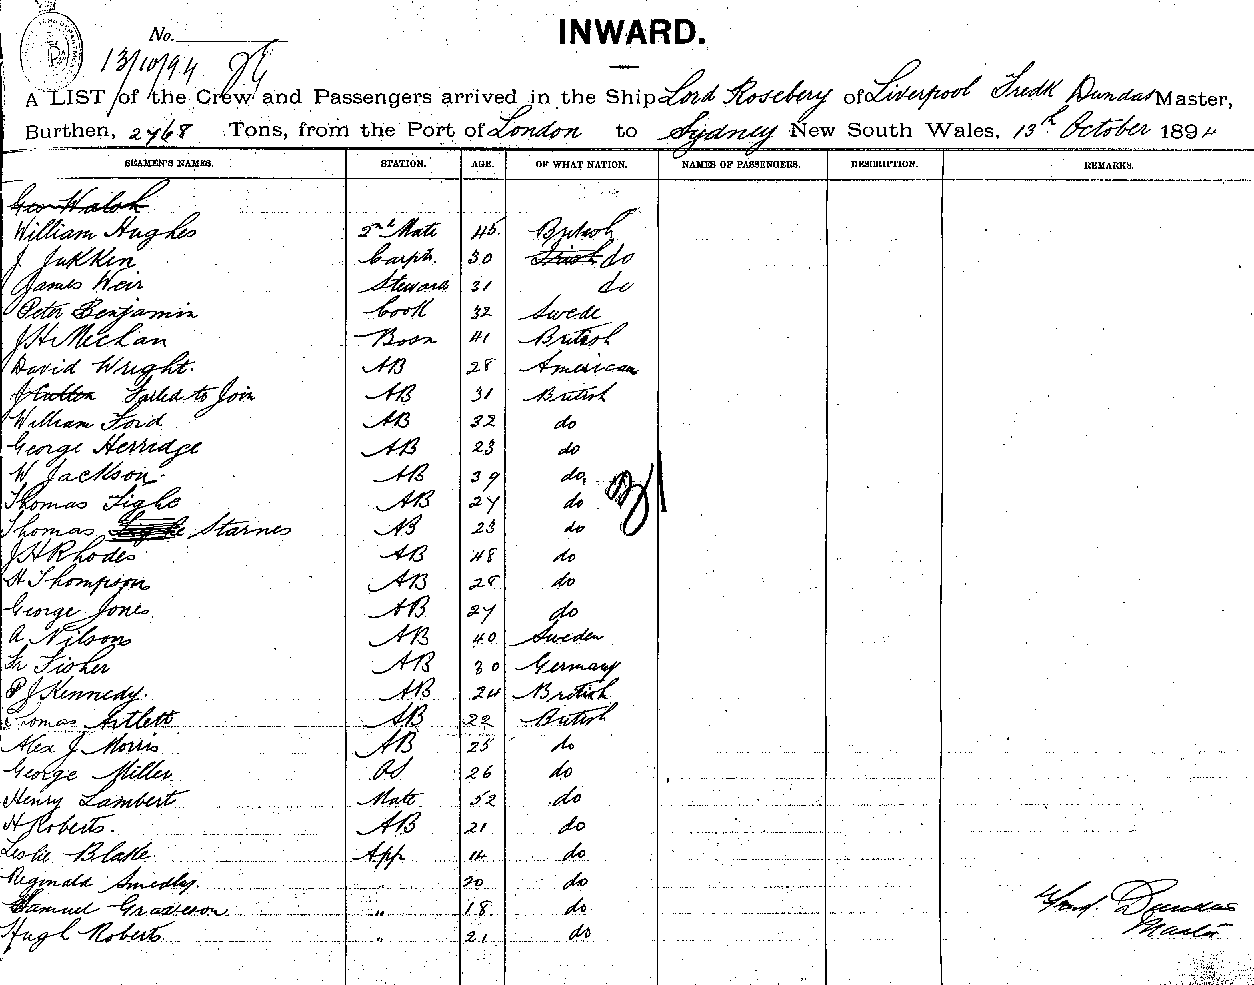 INWARD.
No.
13/10/94
A LIST of the Crew and Passengers arrived in the Ship Lord Rosebery of Liverpool Fredk Dundas Master,
Burthen, 2468 Tons, from the Port of London to Sydney New South Wales, 13th October 1894
SEAMEN'S NAMES. STATION. AGE. OF WHAT NATION. NAMES OF PASSENGERS. DESCRIPTION. REMARKS.
Geo Walsh
William Hughes 2nd Mate 45 British
J. Jukken Carptr. 30 Irish do
James Weir Steward 31 do
Peter Benjamin Cook 32 Swede
J H Meehan Bosn 41 British
David Wright. AB 28 American
J Cutton Failed to Join AB 31 British
William Ford AB 32 do
George Herridge AB 23 do
W Jackson. AB 39 do
Thomas Tighe AB 27 do
Thomas Starnes AB 23 do
J H Rhodes AB 48 do
H Thompson AB 28 do
George Jones AB 27 do
A Nilson AB 40 Sweden
Fr Fisher AB 30 Germany
P J Kennedy. AB 24 British
Thomas Artlett AB 22 British
Alex J Morris AB 25 do
George Miller OS 26 do
Henry Lambert Mate 52 do
H Roberts. AB 21 do
Leslie Blake App 14 do
Reginald Smedley. " 20 do
Samuel Graveson " 18 do
Hugh Roberts " 21 do
Dundas
Master